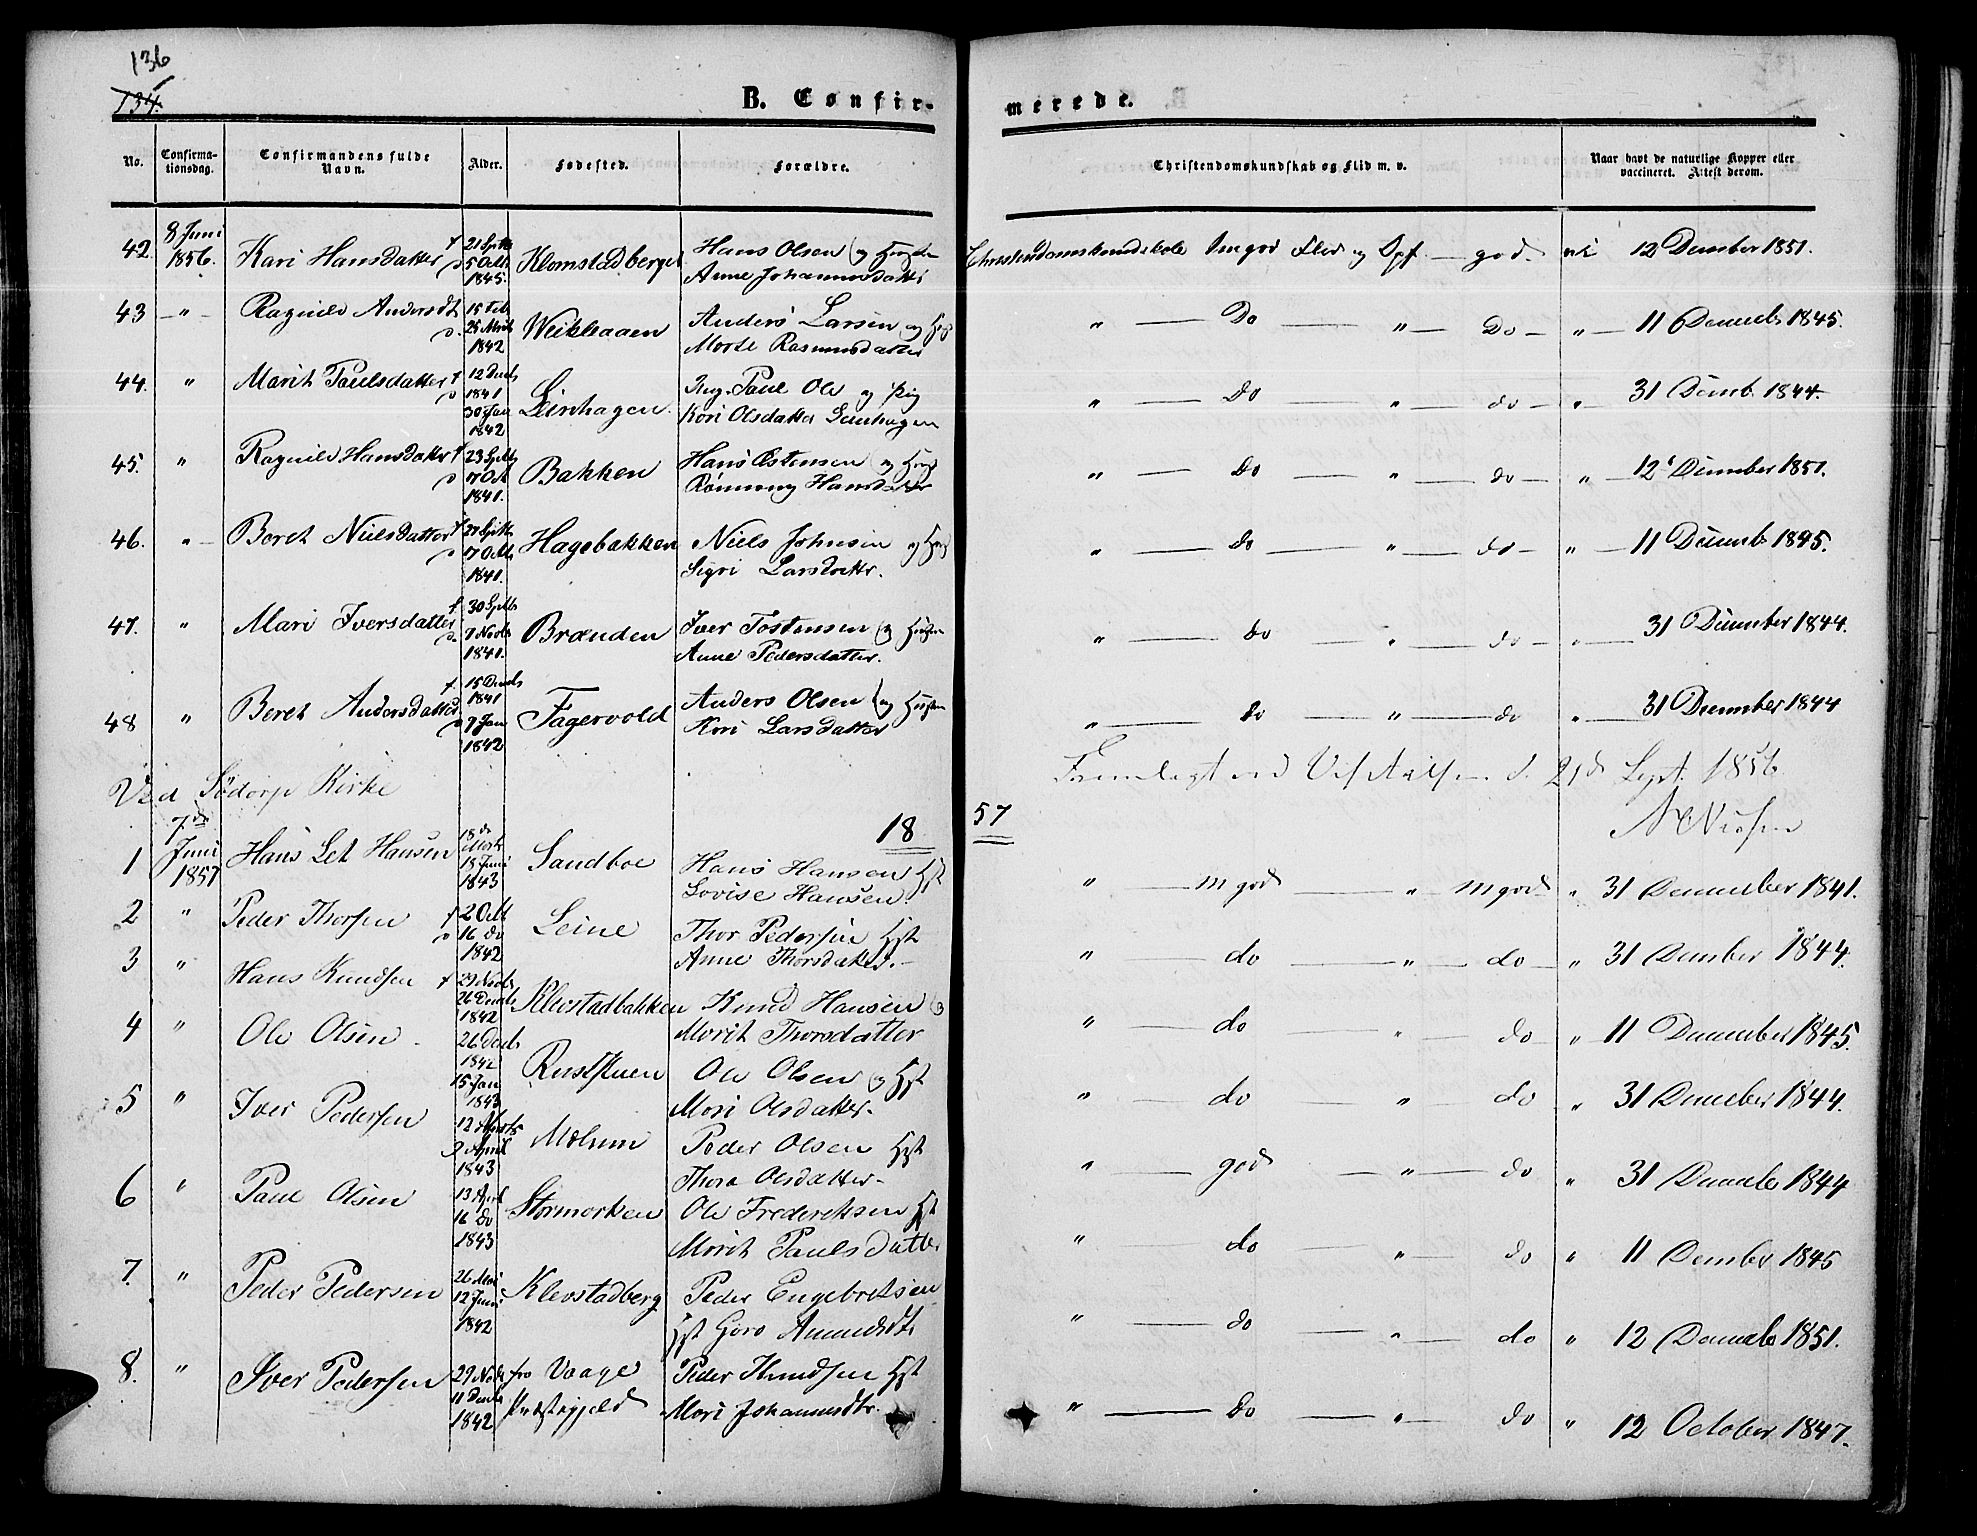 136
134.
B. Confirmerede.
No. Confirmationsdag. Confirmandens fulde Navn. Alder. Fødested. Forældre. Christendomskundskab og Flid m. v. Naar havt de naturlige Kopper eller vaccineret. Attest derom.
42. 8 Juni 1856. Kari Hansdatter 21 Septr 5 Octb 1845. Klomstadberget Hans Olsen og Anne Johannesdatter god 12 December 1851.
43 " Ragnild Andersdt 15 Feb 25 1842 Anders Larsen og Rasmusdatter " Do " Do " 11 Decemb 1845.
44. " Marit Paulsdatter 12 Decb 1841 30 Jan 1842 Leinhagen Paul Ole og Kari Olsdatter Leinhagen " do " do " 31 Decemb 1844.
45. " Ragnild Hansdatter 23 Septb 17 Oct 1841. Bakken Hans Østensen og Rønnaug Hansdatter " do " do " 12 December 1851.
46. " Beret Nielsdatter 27 Septb 17 Octb 1841. Hagebakken Niels Johnsen og Sigri Larsdatter. " do " do " 11 Decemb 1845.
47. " Mari Iversdatter 30 Septb 7 Novb 1841. Brænden Iver Tostensen og Anne Pedersdatter. " do " do " 31 December 1844.
48 " Beret Andersdatter 15 Decemb 1841 7 Jan 1842 Fagervold Anders Olsen og Kari Larsdatter " do " do " 31 December 1844
Ved Södorp Kirke
Fremlagt ved d. 21de Sept. 1856
18 57
1 7de Juni 1857 Hans Let Hansen 18de Marts 18 Juni 1843 Sandboe Hans Hansen Hst Lovise Hansen. " M god " M god " 31 December 1841.
2 " Peder Thorsen 2 Octb 16 do 1842 Leine Thor Pedersen Hst Anne Thorsdatter. " do " do " 31 December 1844.
3 " Hans Knudsen 29 Novb 26 Decemb 1842 Klevstadbakken Knud Hansen og Marit Thorsdatter " do " do " 11 December 1845.
4 " Ole Olsen 26 Decb 1842 15 Jan 1843 Ruststuen Ole Olsen og Hst Mari Olsdatter. " do " do " 31 December 1844.
5 " Iver Pedersen 12 Marts 9 April 1843 Melum Peder Olsen Hst Thora Olsdatter " god " do " 31 Decemb 1844
6 " Paul Olsen 13 April 16 do 1843 Stormorken Ole Frederiksen Hst Marit Paulsdatter " do " do " 11 December 1845
7. " Peder Pedersen 26 Mai 12 Juni 1842 Klevstadberg Peder Engebretsen Hst Goro Amundsdt. " do " do " 12 Decemb 1851.
8. " Iver Pedersen 29 Novb 11 Decb 1842 fra Vaage Præstegjeld Peder Knudsen Hst Mari Johannesdtr. " do " do " 12 October 1847.